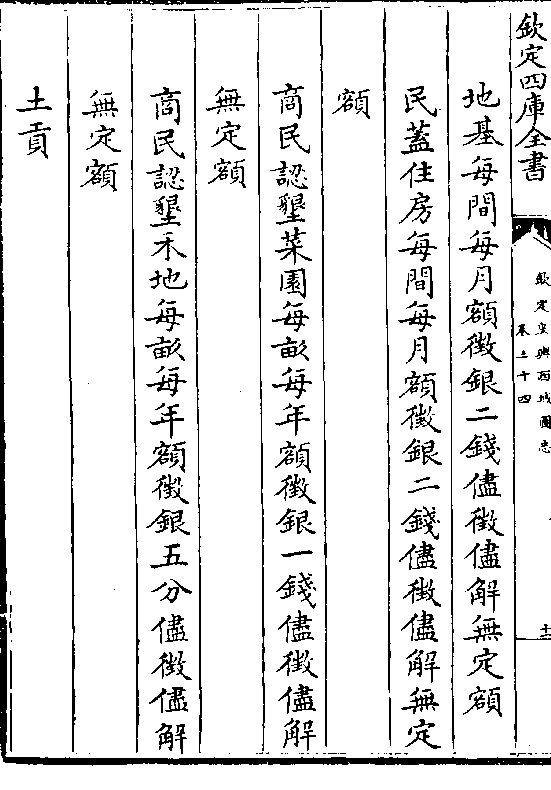 欽定四庫全書
欽定皇輿西域圖志
卷三十四
十一
地基每間每月額徵銀二錢儘徵儘解無定額
民蓋住房每間每月額徵銀二錢儘徵儘解無定
額
商民認墾菜園每畝每年額徵銀一錢儘徵儘解
無定額
商民認墾禾地每畝每年額徵銀五分儘徵儘解
無定額
土貢